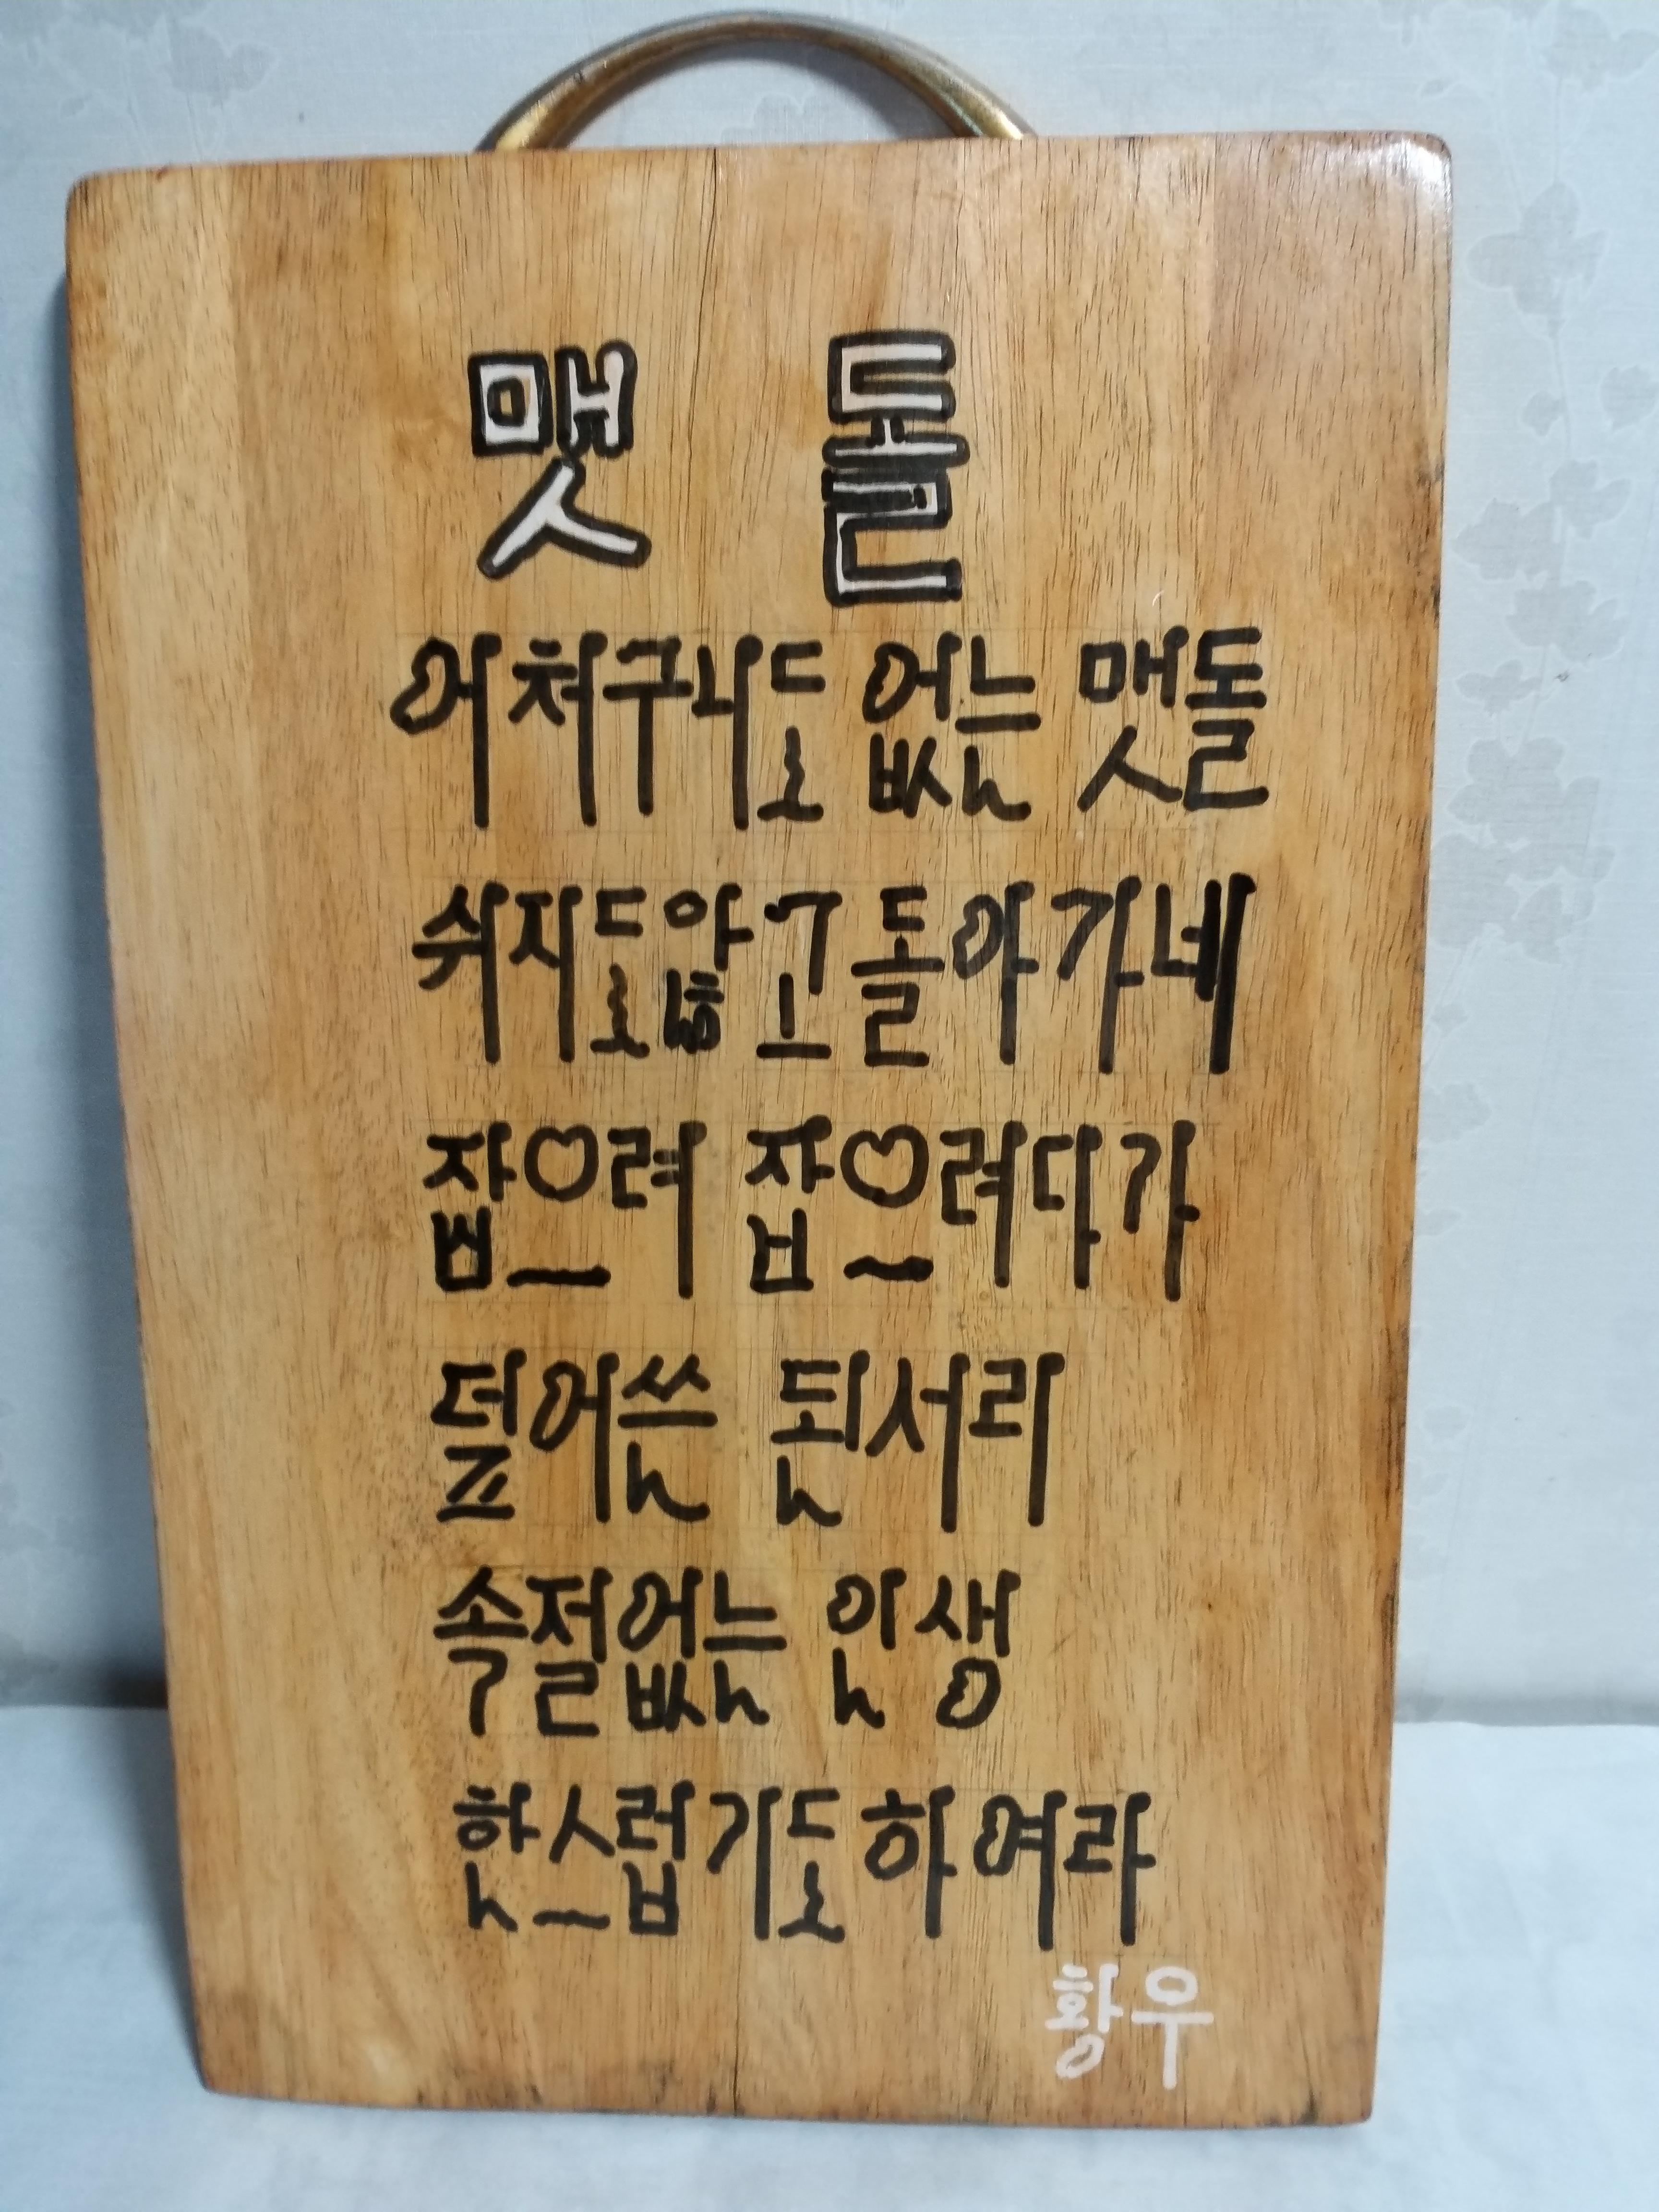 맷돌
어처구니도 없는 맷돌
쉬지도않고돌아가네
잡으려 잡으려다가
덮어쓴 된서리
속절없는 인생
한스럽기도하여라
황우